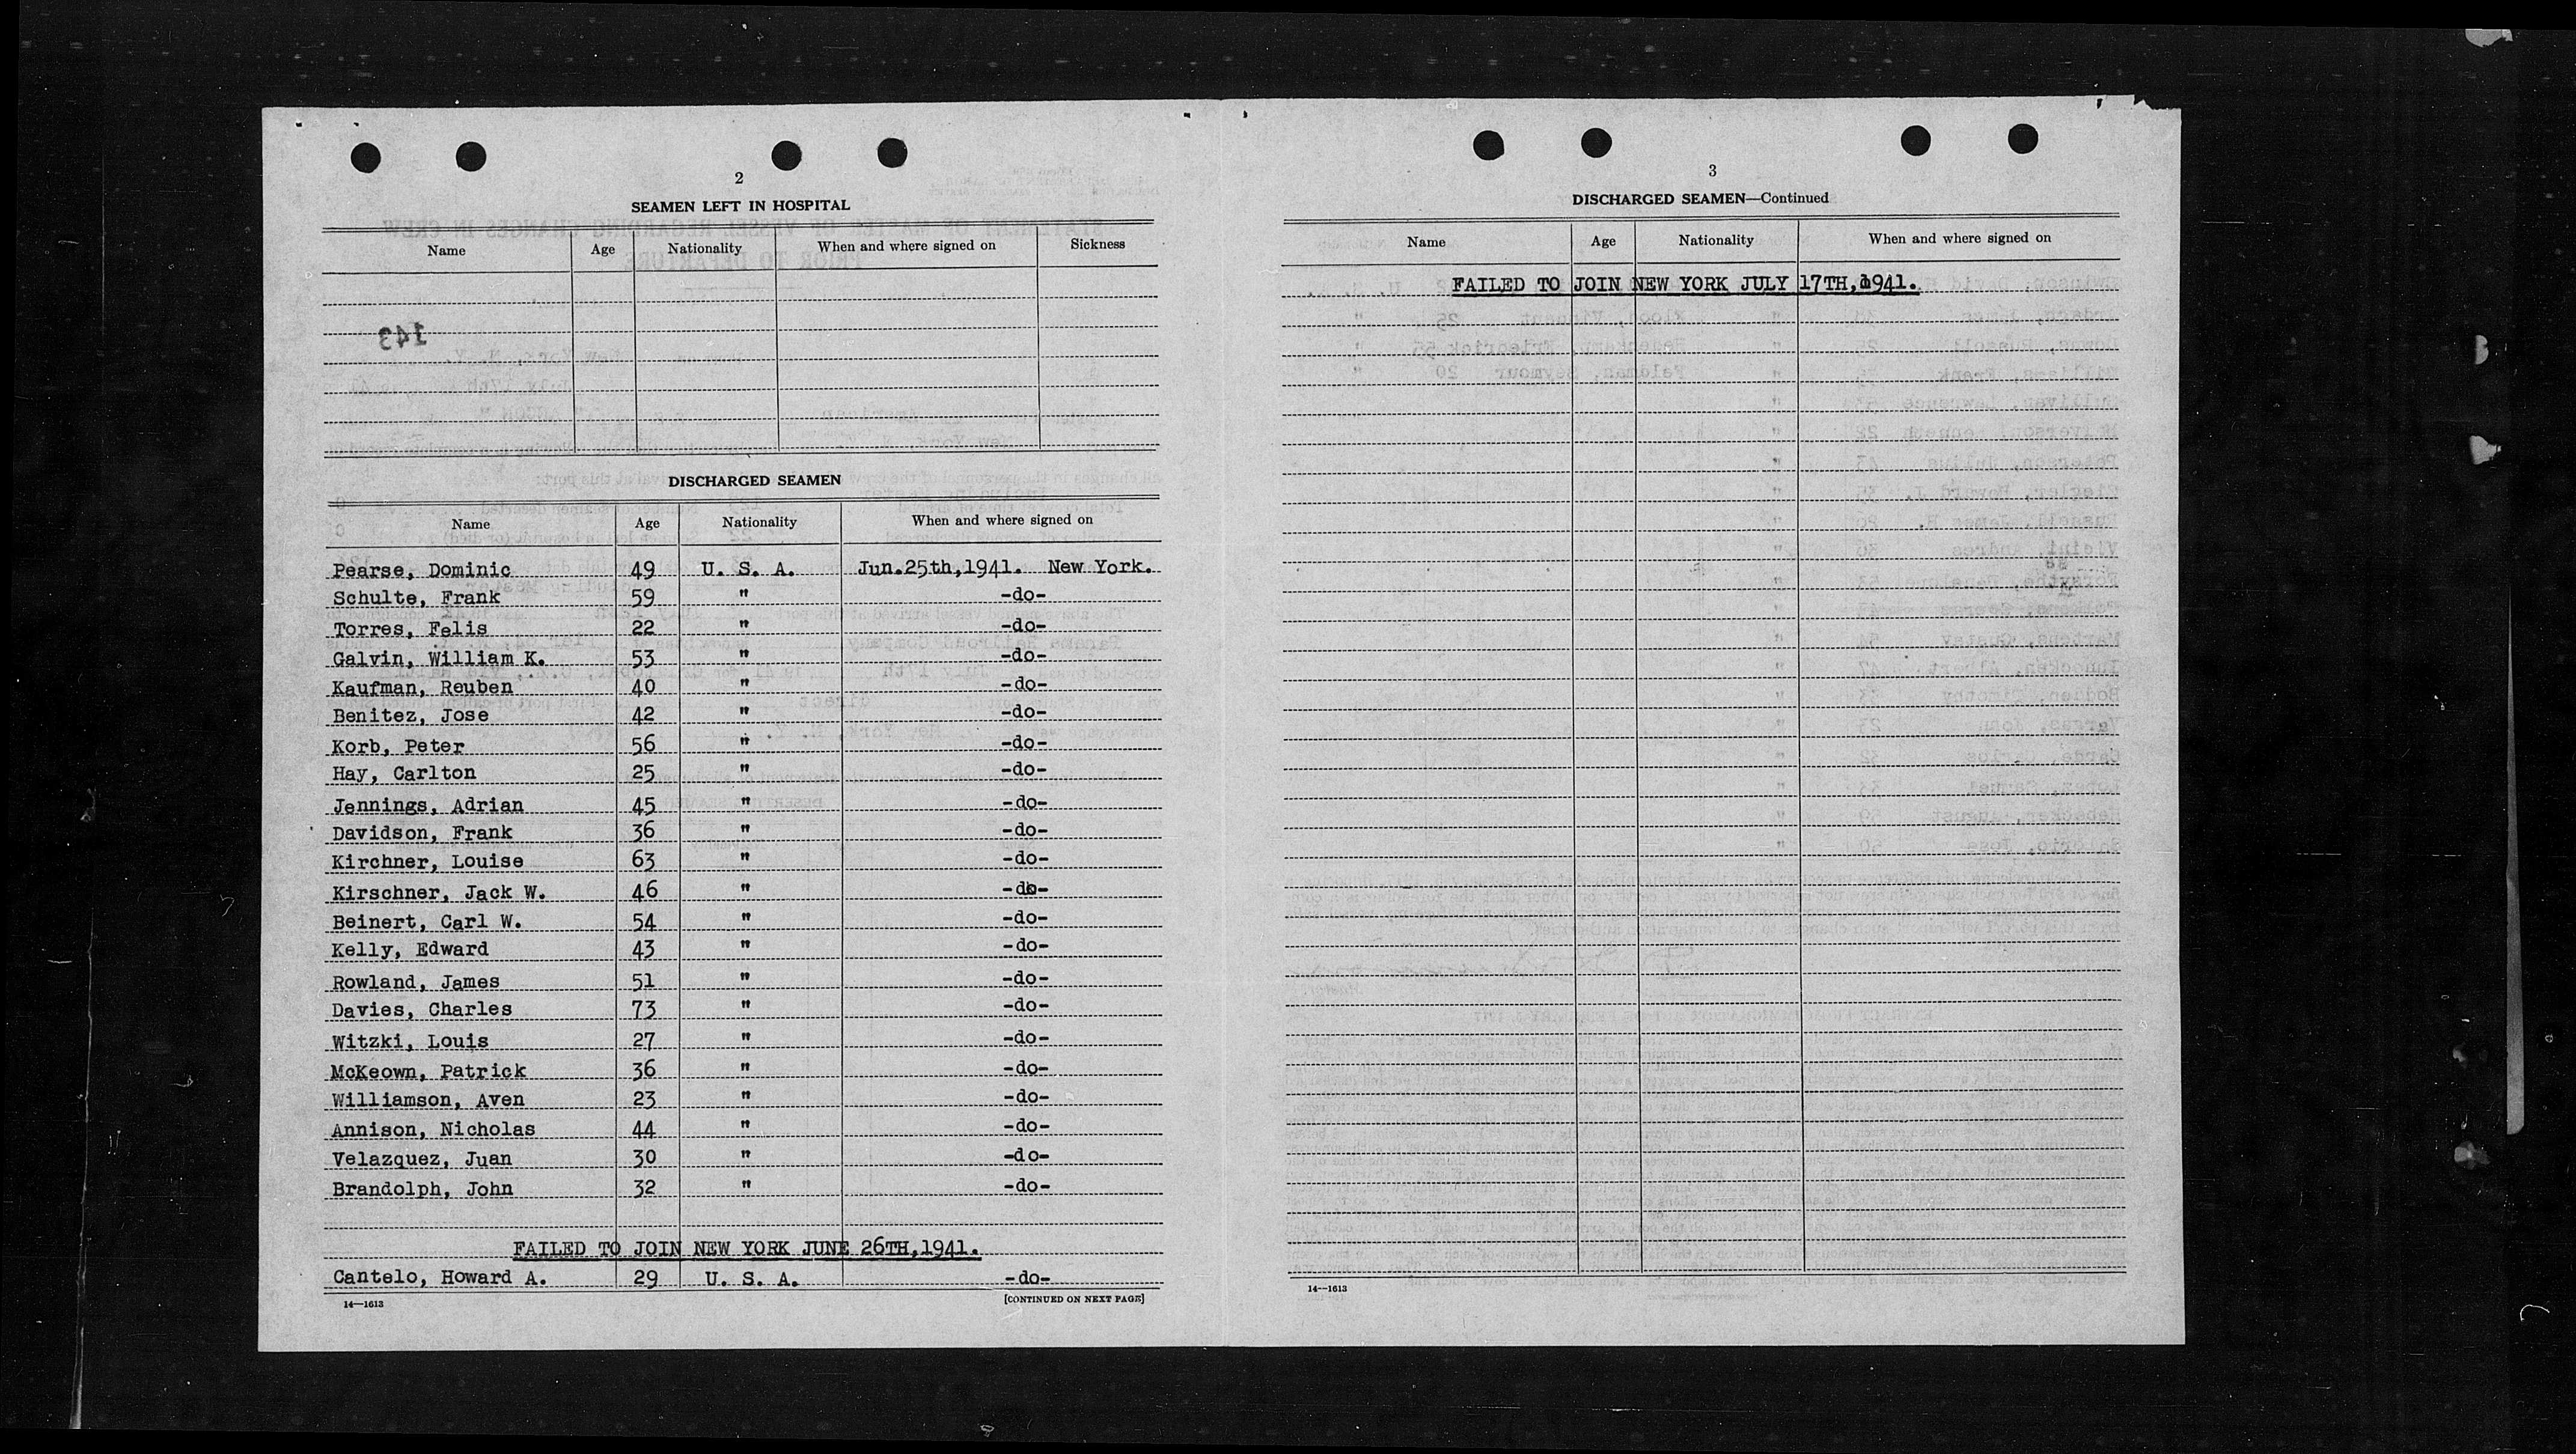 2
SEAMEN LEFT IN HOSPITAL
Name Age Nationality When and where signed on Sickness
143
DISCHARGED SEAMEN
Name Age Nationality When and where signed on
Pearse, Dominic 49 U. S. A. Jun.25th,1941. New York.
Schulte, Frank 59 " -do-
Torres, Felis 22 " -do-
Galvin, William K. 53 " -do-
Kaufman, Reuben 40 " -do-
Benitez, Jose 42 " -do-
Korb, Peter 56 " -do-
Hay, Carlton 25 " -do-
Jennings, Adrian 45 " -do-
Davidson, Frank 36 " -do-
Kirchner, Louise 63 " -do-
Kirschner, Jack W. 46 " -do-
Beinert, Carl W. 54 " -do-
Kelly, Edward 43 " -do-
Rowland, James 51 " -do-
Davies, Charles 73 " -do-
Witzki, Louis 27 " -do-
McKeown, Patrick 36 " -do-
Williamson, Aven 23 " -do-
Annison, Nicholas 44 " -do-
Velazquez, Juan 30 " -do-
Brandolph, John 32 " -do-
FAILED TO JOIN NEW YORK JUNE 26TH,1941.
Cantelo, Howard A. 29 U. S. A. -do-
14—1613 [CONTINUED ON NEXT PAGE]
3
DISCHARGED SEAMEN—Continued
Name Age Nationality When and where signed on
FAILED TO JOIN NEW YORK JULY 17TH,1941.
14—1613